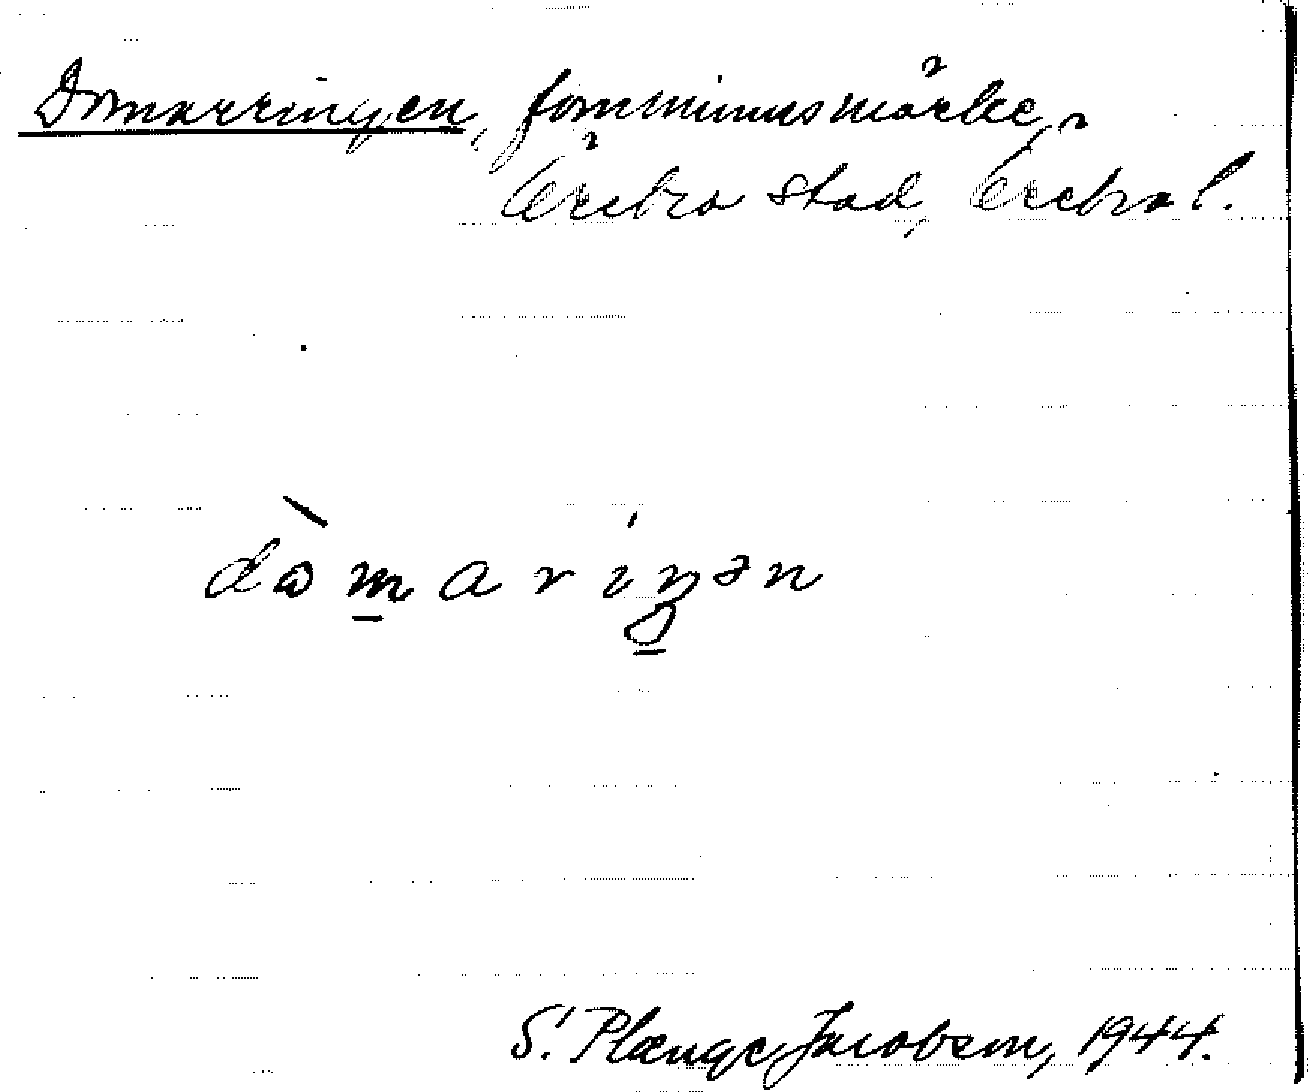 Domarringen, fornminnesmärke,
Örebro stad, Örebro l.
dὼmariŋən
S. Plænge Jacobson, 1944.